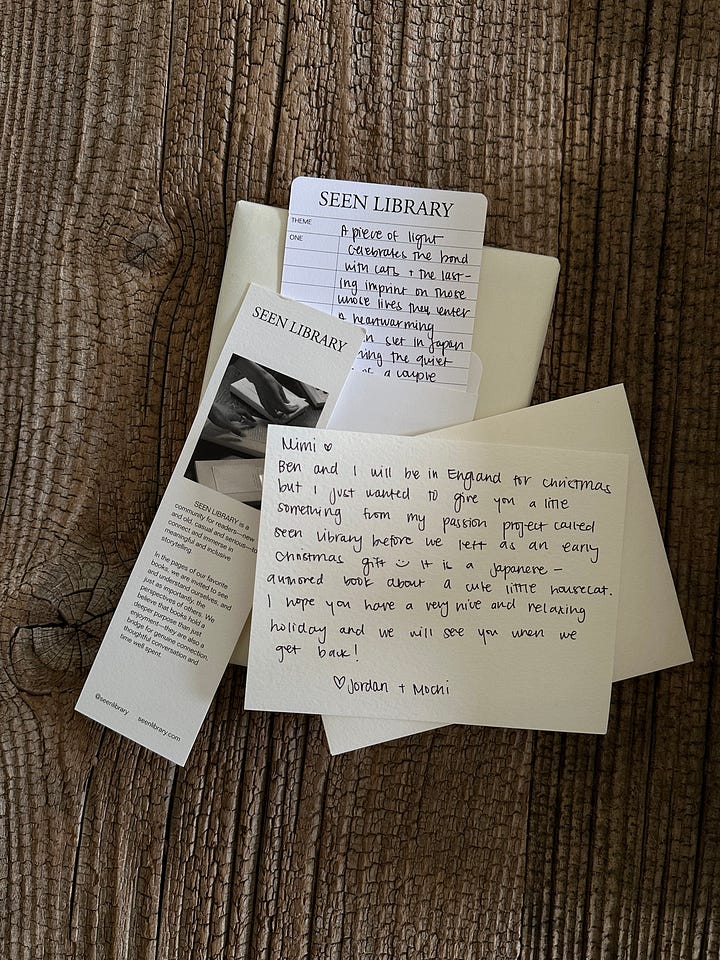 SEEN LIBRARY
THEME
ONE
A piece of light
celebrates the bond
with cats + the last-
ing imprint on those
whose lives they enter
A heartwarming
set in Japan
the quiet
of a couple
SEEN LIBRARY
SEEN LIBRARY is a
community for readers—new
and old, casual and serious—to
connect and immerse in
meaningful and inclusive
storytelling.
In the pages of our favorite
books, we are invited to see
and understand ourselves, and
just as importantly, the
perspectives of others. We
believe that books hold a
deeper purpose than just
enjoyment—they are also a
bridge for genuine connection,
thoughtful conversation and
time well spent.
@seenlibrary seenlibrary.com
Mimi ♡
Ben and I will be in England for christmas
but I just wanted to give you a little
something from my passion project called
seen library before we left as an early
christmas gift :) It is a Japanese-
authored book about a cute little housecat.
I hope you have a very nice and relaxing
holiday and we will see you when we
get back!
♡ Jordan + Mochi